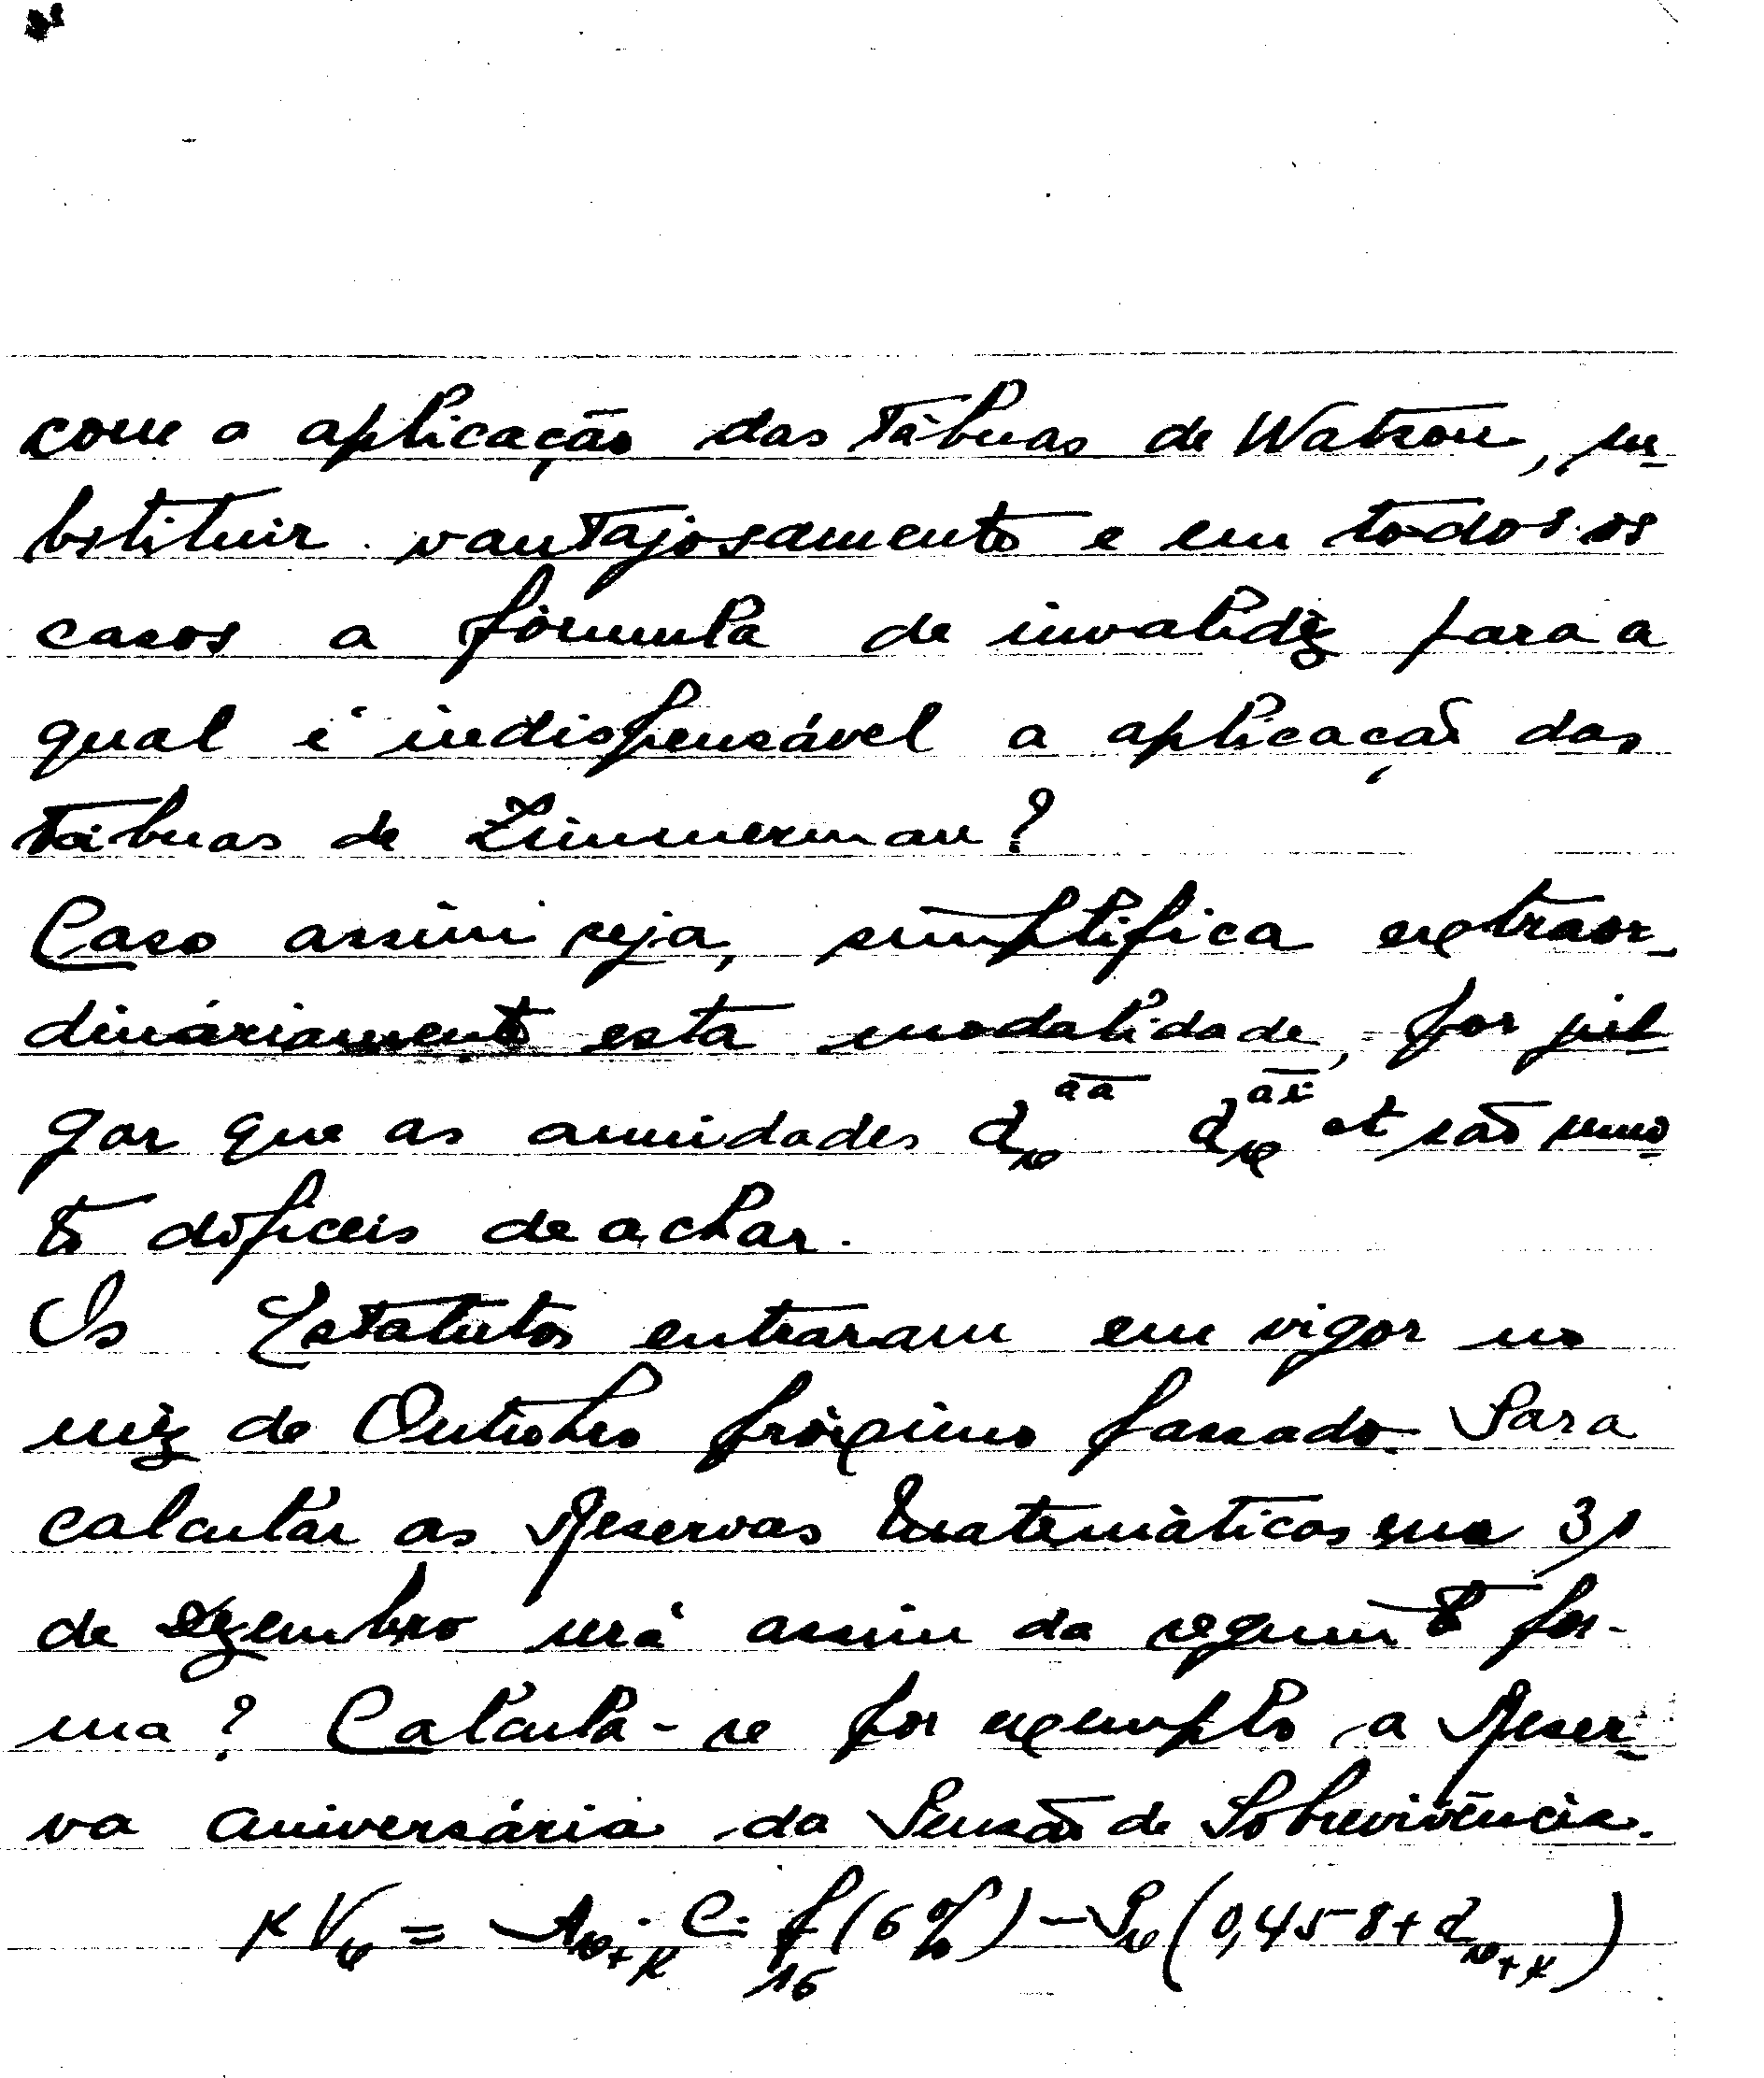 com a aplicação das Tábuas de Watson, su-
bstituir vantajosamente e em todos os
casos a fórmula de invalidez para a
qual é indispensável a aplicação das
Tábuas de Zimmerman?
Caso assim seja, simplifica extraor-
dináriamente esta modalidade, por jul
gar que as anuidades a_x^{aa} a_x^{ai} et são mui
to dificeis de achar.
Os Estatutos entraram em vigor no
mêz de Outubro próximo passado. Para
calcular as Reservas Matemáticas em 31
de Dezembro será assim da seguinte for-
ma? Calcula-se por exemplo a Reser-
va aniversária da Pensão de Sobrevivência.
KVx = A_{x+K} · C · f_{16} (6%) - P_x (0,458 + a_{x+K})